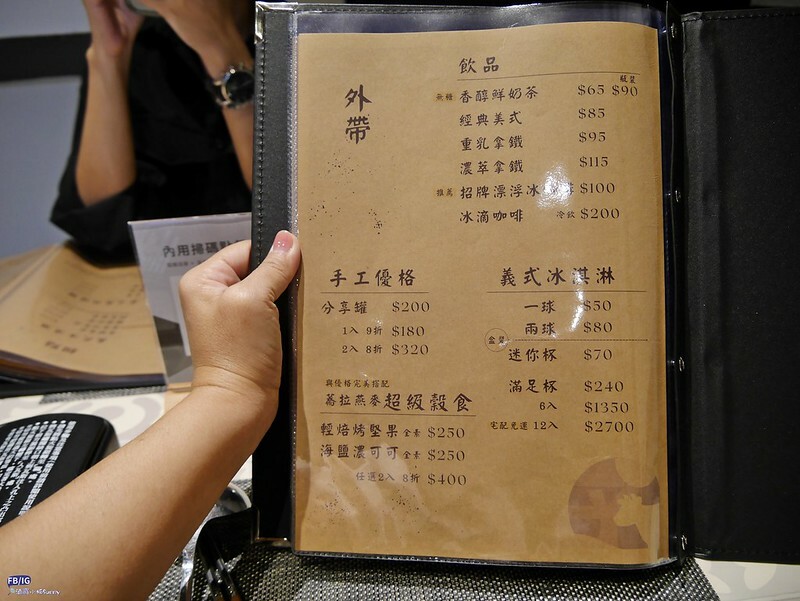 外帶
飲品
瓶裝
無糖 香醇鮮奶茶 $65 $90
經典美式 $85
重乳拿鐵 $95
濃萃拿鐵 $115
推薦 招牌漂浮冰 $100
冰滴咖啡 冷飲 $200
手工優格
分享罐 $200
1入 9折 $180
2入 8折 $320
與優格完美搭配
蔦拉燕麥超級穀食
輕焙烤堅果 全素 $250
海鹽濃可可 全素 $250
任選2入 8折 $400
義式冰淇淋
一球 $50
兩球 $80
盒裝
迷你杯 $70
滿足杯 $240
6入 $1350
宅配免運 12入 $2700
內用掃碼點
FB/IG